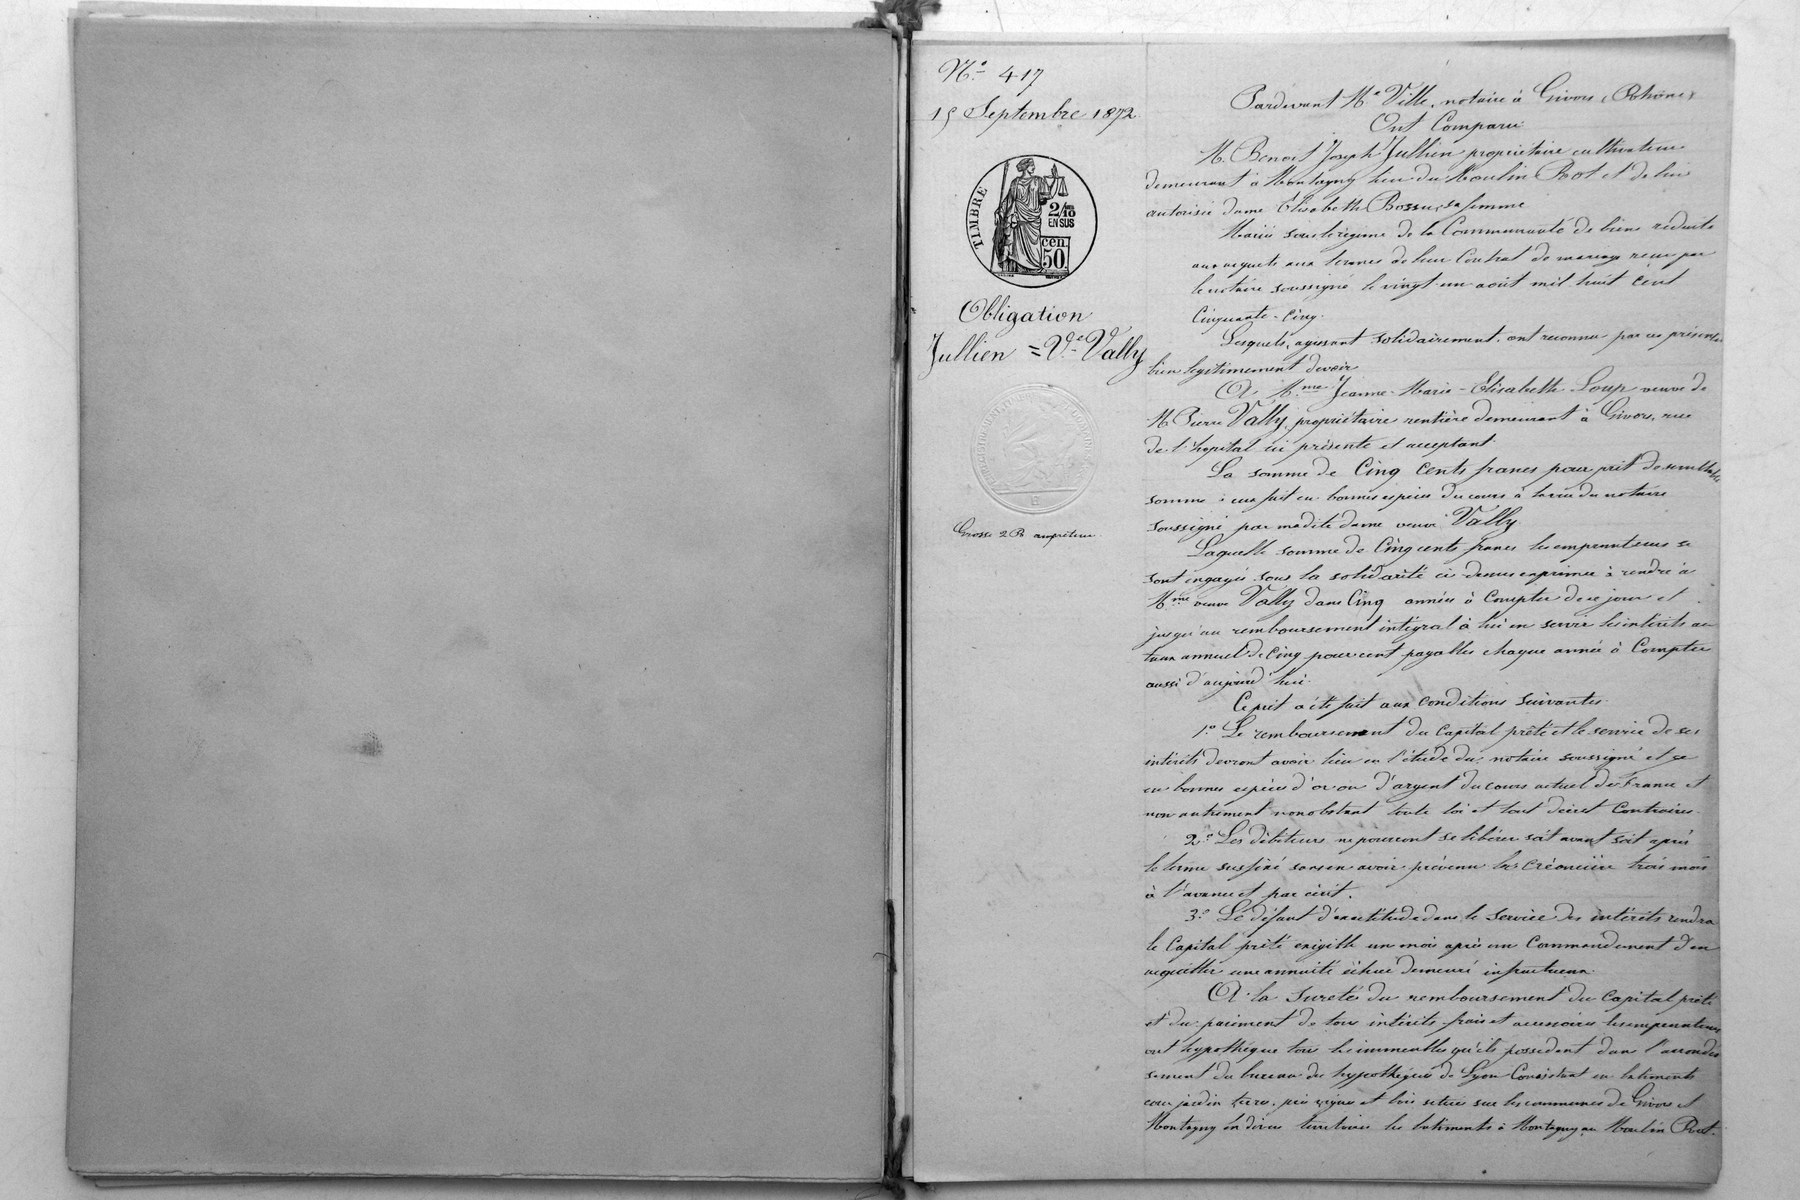 N.° 417
15 Septembre 1872.
TIMBRE
2/10
EN SUS
cen.
50.
Obligation
Jullien = V.e Vally
Grosse 2 R. au prêteur
Pardevant M.e Ville, notaire à Givors (Rhône)
Ont Comparu
M. Benoit Joseph Jullien propriétaire cultivateur
demeurant à Montagny lieu du Moulin Poot et de lui
autorisée dame Elisabeth Bossu, sa femme
Mariés sous le régime de la Communauté de biens réduite
aux acquets aux termes de leur Contrat de mariage reçu par
le notaire soussigné le vingt-un août mil huit cent
Cinquante-Cinq.
Lesquels, agissant solidairement, ont reconnu par ces présentes
bien légitimement devoir
A M.me Jeanne-Marie-Elisabeth Loup veuve de
M. Pierre Vally, propriétaire rentière demeurant à Givors, rue
de l'hopital ici présente et acceptant
La somme de Cinq Cents francs pour prêt de semblable
somme à eux fait en bonnes espèces du cours à la vue du notaire
soussigné par madite dame veuve Vally
Laquelle somme de Cinq cents francs les emprunteurs se
sont engagés sous la solidarité ci-dessus exprimée à rendre à
M.me veuve Vally dans Cinq années à Compter de ce jour et
jusqu'au remboursement intégral à lui en servir les intérêts au
taux annuel de Cinq pour cent payables chaque année à Compter
aussi d'aujourd'hui.
Ce prêt a été fait aux conditions suivantes.
1.° Le remboursement du Capital prêté et le service de ses
intérêts devront avoir lieu en l'étude du notaire soussigné et ce
en bonnes espèces d'or ou d'argent du cours actuel de France et
non autrement nonobstant toute loi et tout décret Contraires.
2.° Les débiteurs ne pourront se libérer soit avant soit après
le terme susfixé sans en avoir prévenu la Créancière trois mois
à l'avance et par écrit.
3.° Le défaut d'exactitude dans le service des intérêts rendra
le Capital prêté exigible un mois après un Commandement d'en
acquitter une annuité échue demeuré infructueux.
A la sureté du remboursement du Capital prêté
et du paiement de tous intérêts frais et accessoires les emprunteurs
ont hypothéqué tous les immeubles qu'ils possèdent dans l'arrondis
sement du bureau des hypothèques de Lyon Consistant en batiments
cour jardin terres, prés vignes et bois situés sur les communes de Givors et
Montagny en divers territoires les batiments à Montagny au Moulin Poot.